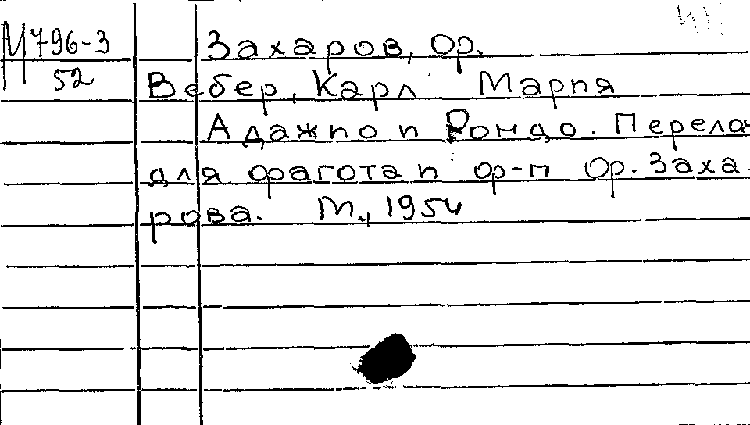 М796-3 Захаров, Ор.
52 Вебер, Карл Мария
Адажио и Рондо. Перелож.
для фагота и ор-п Ор. Заха-
рова. М., 1954